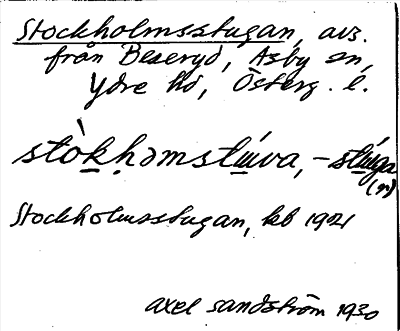 Stockholmsstugan, avs.
från Beseryd, Asby sn,
Ydre hd, Österg. l.
stòkhəmstúva, – stúga
(n)
Stockholmsstugan, kb 1921
Axel Sandström 1930